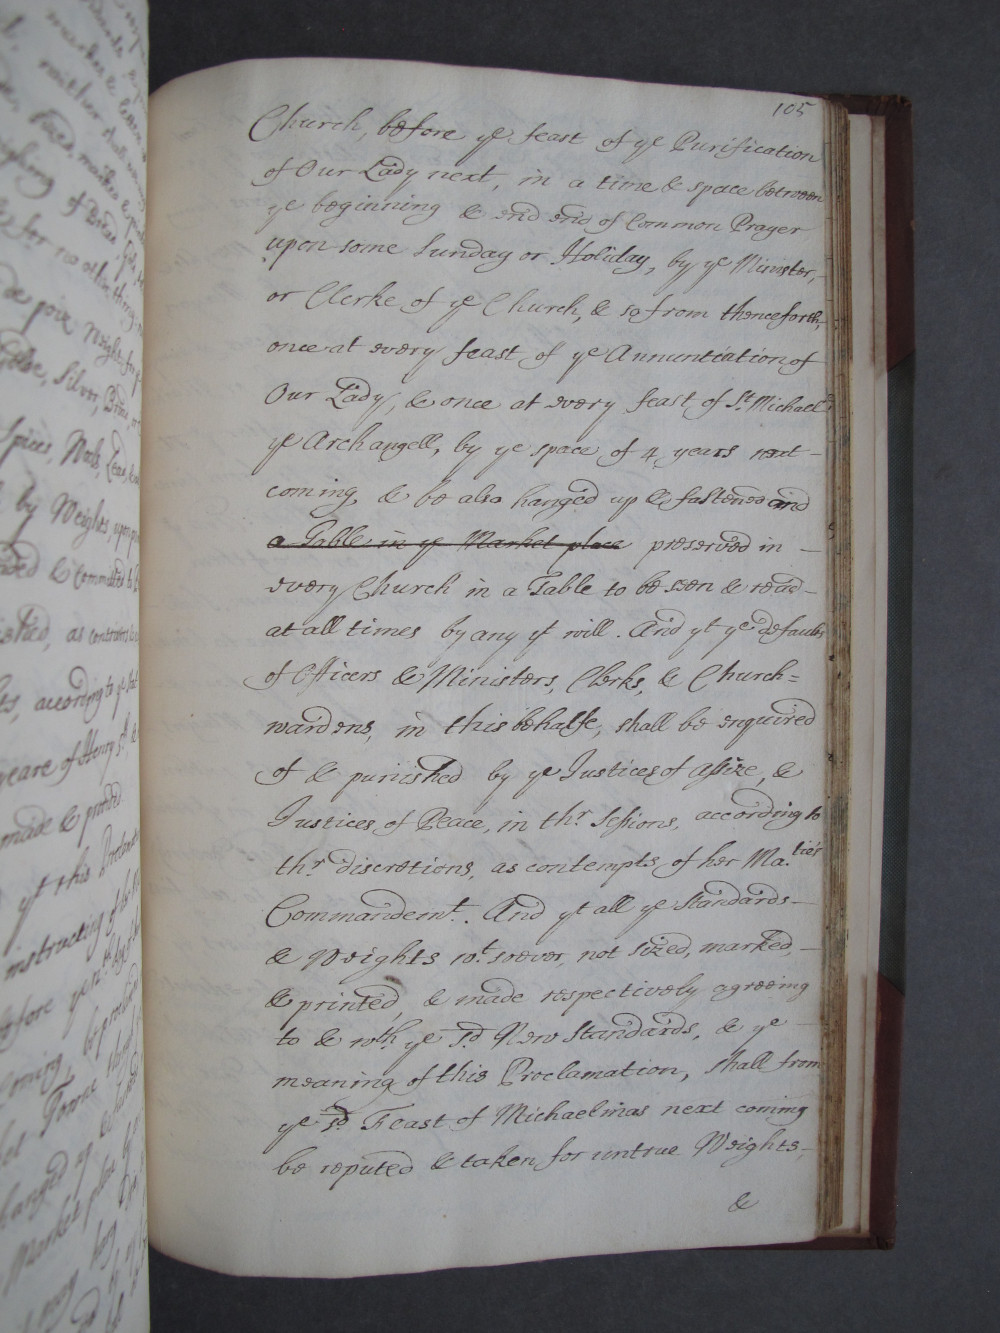 105
Church, before ye feast of ye Purification
of Our Lady next, in a time & space between
ye beginning & end ends of Common Prayer
upon some Sunday or Holiday, by ye Minister,
or Clerke of ye Church, & so from thenceforth,
once at every feast of ye Annuntiation of
Our Lady, & once at every feast of St. Michael
ye Archangell, by ye space of 4 years next -
coming, & be also hanged up & fastened and
a Table in ye Market place preserved in -
every Church in a Table to be seen & read -
at all times by any yt will. And yt ye defaults
of Officers & Ministers, Clerks, & Church=
wardens, in this behalfe, shall be enquired
of & punished by ye Justices of Assize, &
Justices of Peace, in thr. Sessions, according to
thr discretions, as contempts of her Ma.ties
Commandemt. And yt all ye Standards -
& Weights wt. soever, not sized, marked, -
& printed, & made respectively agreeing
to & wth ye sd New Standards, & ye -
meaning of this Proclamation, shall from
ye sd. Feast of Michaelmas next coming
be reputed & taken for untrue Weights, -
&
of Bread
Gold, Silver,
Spices,
by Weights,
& Committed to
according to ye
yeare of Henry
made &
yt this
instructing of
before ye
coming,
Towne
hanged
Market place